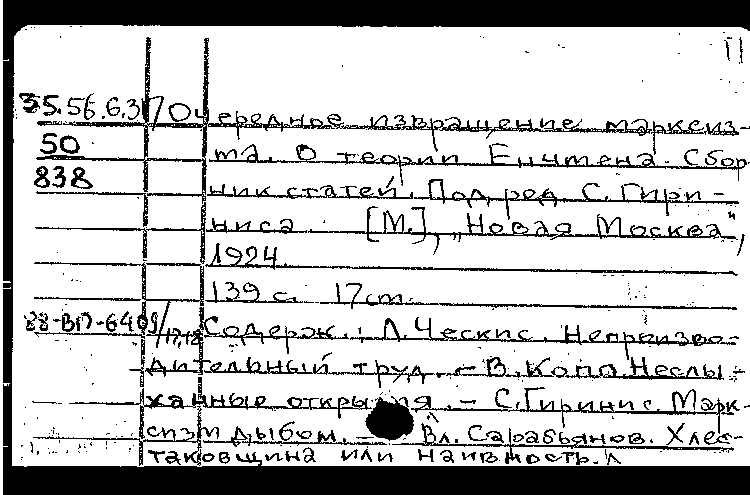 35.56.6.31/ Очередное извращение марксиз-
50 ма. О теории Енчмена. Сбор-
838 ник статей. Под ред. С. Гири-
ниса. [М.], „Новая Москва",
1924.
139 с. 17 cm.
88-ВП-6409/17,18 Содерж.: Л. Ческис. Непроизво-
дительный труд. – В. Капо. Неслы-
ханные открытия. – С. Гиринис. Марк-
сизм дыбом. – Вл. Сарабьянов. Хлес-
таковщина или наивность.